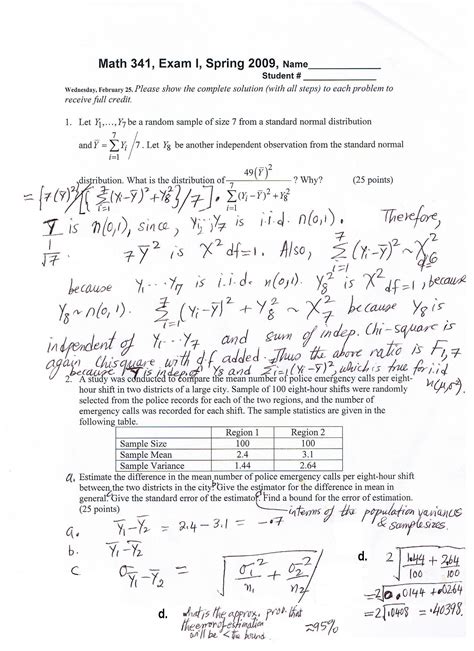 Math 341, Exam I, Spring 2009, Name
Student #
Wednesday, February 25. Please show the complete solution (with all steps) to each problem to
receive full credit.
1. Let Y₁,…,Y₇ be a random sample of size 7 from a standard normal distribution
and Ȳ = ∑ᵢ₌₁⁷ Yᵢ / 7. Let Y₈ be another independent observation from the standard normal
distribution. What is the distribution of 49(Ȳ)² / (∑ᵢ₌₁⁷ (Yᵢ−Ȳ)² + Y₈²) ? Why? (25 points)
= {7(Ȳ)²} / [{∑ᵢ₌₁⁷ (Yᵢ−Ȳ)² + Y₈²}/7].
Ȳ is n(0,1), since, Y₁…Y₇ is i.i.d. n(0,1). Therefore,
1/√7. 7Ȳ² is χ² df=1. Also, ∑ᵢ₌₁⁷ (Yᵢ−Ȳ)² ~ χ² df=6
because Y₁…Y₇ is i.i.d. n(0,1). Y₈² is χ² df=1, because
Y₈ ~ n(0,1). ∑ᵢ₌₁⁷ (Yᵢ−Ȳ)² + Y₈² ~ χ²₇ because Y₈ is
independent of Y₁…Y₇ and sum of indep. Chi-square is
again Chisquare with df added. Thus the above ratio is F₁,₇
because Ȳ is indep of Y₈ and ∑ᵢ₌₁⁷ (Yᵢ−Ȳ)², which is true for i.i.d n(μ,σ²).
2. A study was conducted to compare the mean number of police emergency calls per eight-
hour shift in two districts of a large city. Sample of 100 eight-hour shifts were randomly
selected from the police records for each of the two regions, and the number of
emergency calls was recorded for each shift. The sample statistics are given in the
following table.
Region 1 Region 2
Sample Size 100 100
Sample Mean 2.4 3.1
Sample Variance 1.44 2.64
a. Estimate the difference in the mean number of police emergency calls per eight-hour shift
between the two districts in the city. b Give the estimator for the difference in mean in
general. c Give the standard error of the estimator. d Find a bound for the error of estimation.
(25 points)
in terms of the population variances
& sample sizes.
a. Ȳ₁−Ȳ₂ = 2.4−3.1 = −.7
b. Ȳ₁−Ȳ₂
c σ Ȳ₁−Ȳ₂ = √(σ₁²/n₁ + σ₂²/n₂)
d. 2√(1.44/100 + 2.64/100)
= 2√.0144 + .0264
= 2√.0408 = .40398.
d. what is the approx. prob. that
the error of estimation
will be < the bound. ≈95%